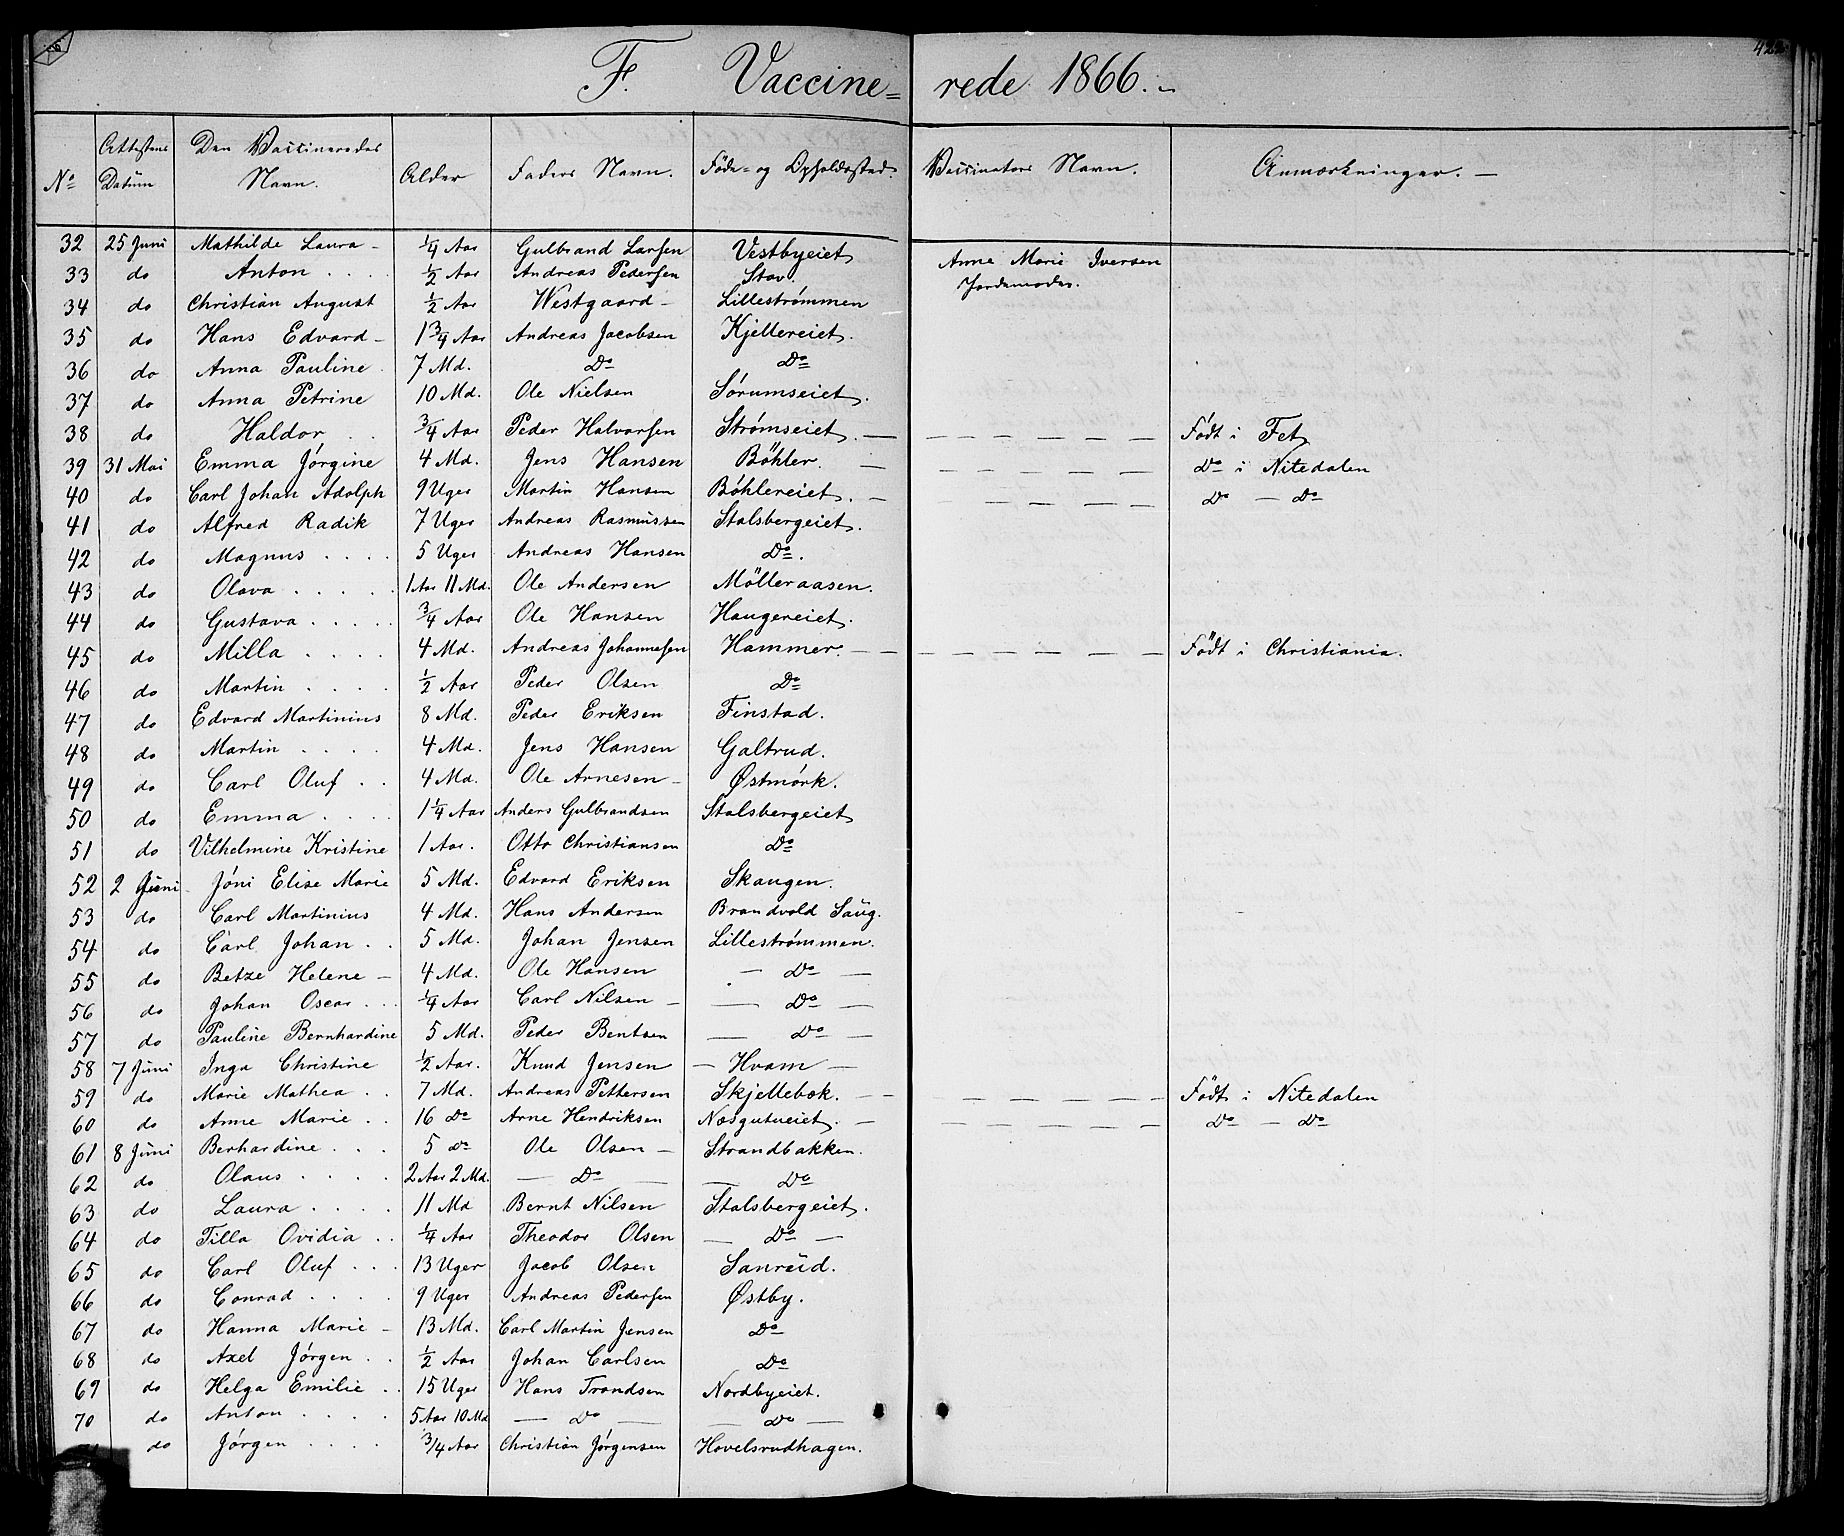 6
42
F. Vaccine= rede 1866.
No Attestens Datum Den Vaccineredes Navn. Alder Faders Navn. Føde- og Opholdssted. Vaccinators Navn. Anmærkninger.
32 25 Juni Mathilde Laura - 1/4 Aar Gulbrand Larsen Vestbyeiet Anne Marie Iversen
33 do Anton . . . . 1/2 Aar Andreas Pedersen Stav. Jordemoder.
34 do Christian August 1/2 Aar Westgaard - Lillestrømmen
35 do Hans Edvard - 1 3/4 Aar Andreas Jacobsen Kjellereiet.
36 do Anna Pauline . 7 Md. Do Do
37 do Anna Petrine 10 Md. Ole Nielsen Sørumseiet.
38 do Haldor . . 3/4 Aar Peder Halvorsen Strømseiet. — — — — — — Født i Fet
39 31 Mai Emma Jørgine 4 Md. Jens Hansen Böhler. — — — — — — Do i Nitedalen
40 do Carl Johan Adolph 9 Uger Martin Hansen Böhlereiet. — — — — — Do — Do
41 do Alfred Radik 7 Uger Andreas Rasmussen Stalsbergeiet.
42 do Magnus . . . . 5 Uger Andreas Hansen Do.
43 do Olava . . . . . 1 Aar 11 Md. Ole Andersen Mölleraasen.
44 do Gustava . . . . . 3/4 Aar Ole Hansen Haugereiet.
45 do Milla . . . . 4 Md. Andreas Johannesen Hammer. — — — — — — — — Født i Christiania.
46 do Martin . . . . 1/2 Aar Peder Olsen Do
47 do Edvard Martinius 8 Md. Peder Eriksen Finstad.
48 do Martin . . . . 4 Md. Jens Hansen Galtrud.
49 do Carl Oluf . . 4 Md. Ole Arnesen - Østmórk.
50 do Emma . . . . 1 1/4 Aar Anders Gulbrandsen Stalsbergeiet
51 do Vilhelmine Kristine 1 Aar. Otto Christiansen Do
52 2 Juni - Jóni Elise Marie 5 Md. Edvard Eriksen Skaugen.
53 do Carl Martinius 4 Md. Hans Andersen Brandvold Saug.
54 do Carl Johan . . 5 Md. Johan Jensen Lillestrømmen.
55 do Betze Helene - 4 Md. Ole Hansen — Do —
56 do Johan Oscar . . . 1/4 Aar Carl Nilsen - — Do —
57 do Pauline Bernhardine 5 Md. Peder Bentsen — Do —
58 7 Juni Inga Christine 1/2 Aar. Knud Jensen — Hvam —
59 do Marie Mathea . . 7 Md. Andreas Pettersen Skjellebok. — — — — — — — — Født i Nitedalen
60 do Anne Marie . . 16 Do Arne Hendriksen Næsgutueiet. — — — — — — — Do — Do
61 8 Juni Berhardine . . . 5 Do Ole Olsen - Strandbakken.
62 do Olaus . . . . 2 Aar 2 Md. — Do — — Do
63 do Laura . . . . 11 Md Bernt Nilsen Stalsbergeiet.
64 do Tilla Ovidia . . 1/4 Aar Theodor Olsen — Do —
65 do Carl Oluf . . . 13 Uger Jacob Olsen Sanrud.
66 do Conrad . . . . 9 Uger Andreas Pedersen Østby.
67 do Hanna Marie - 13 Md. Carl Martin Jensen Do
68 do Axel Jørgen . . 1/2 Aar Johan Carlsen Do
69 do Helga Emilie . . 15 Uger Hans Trondsen Nordbyeiet.
70 do Anton . . . . 5 Aar 10 Md — Do — — Do —
do Jørgen . . . . 3/4 Aar Christian Jørgensen Hovelsrudhagen.